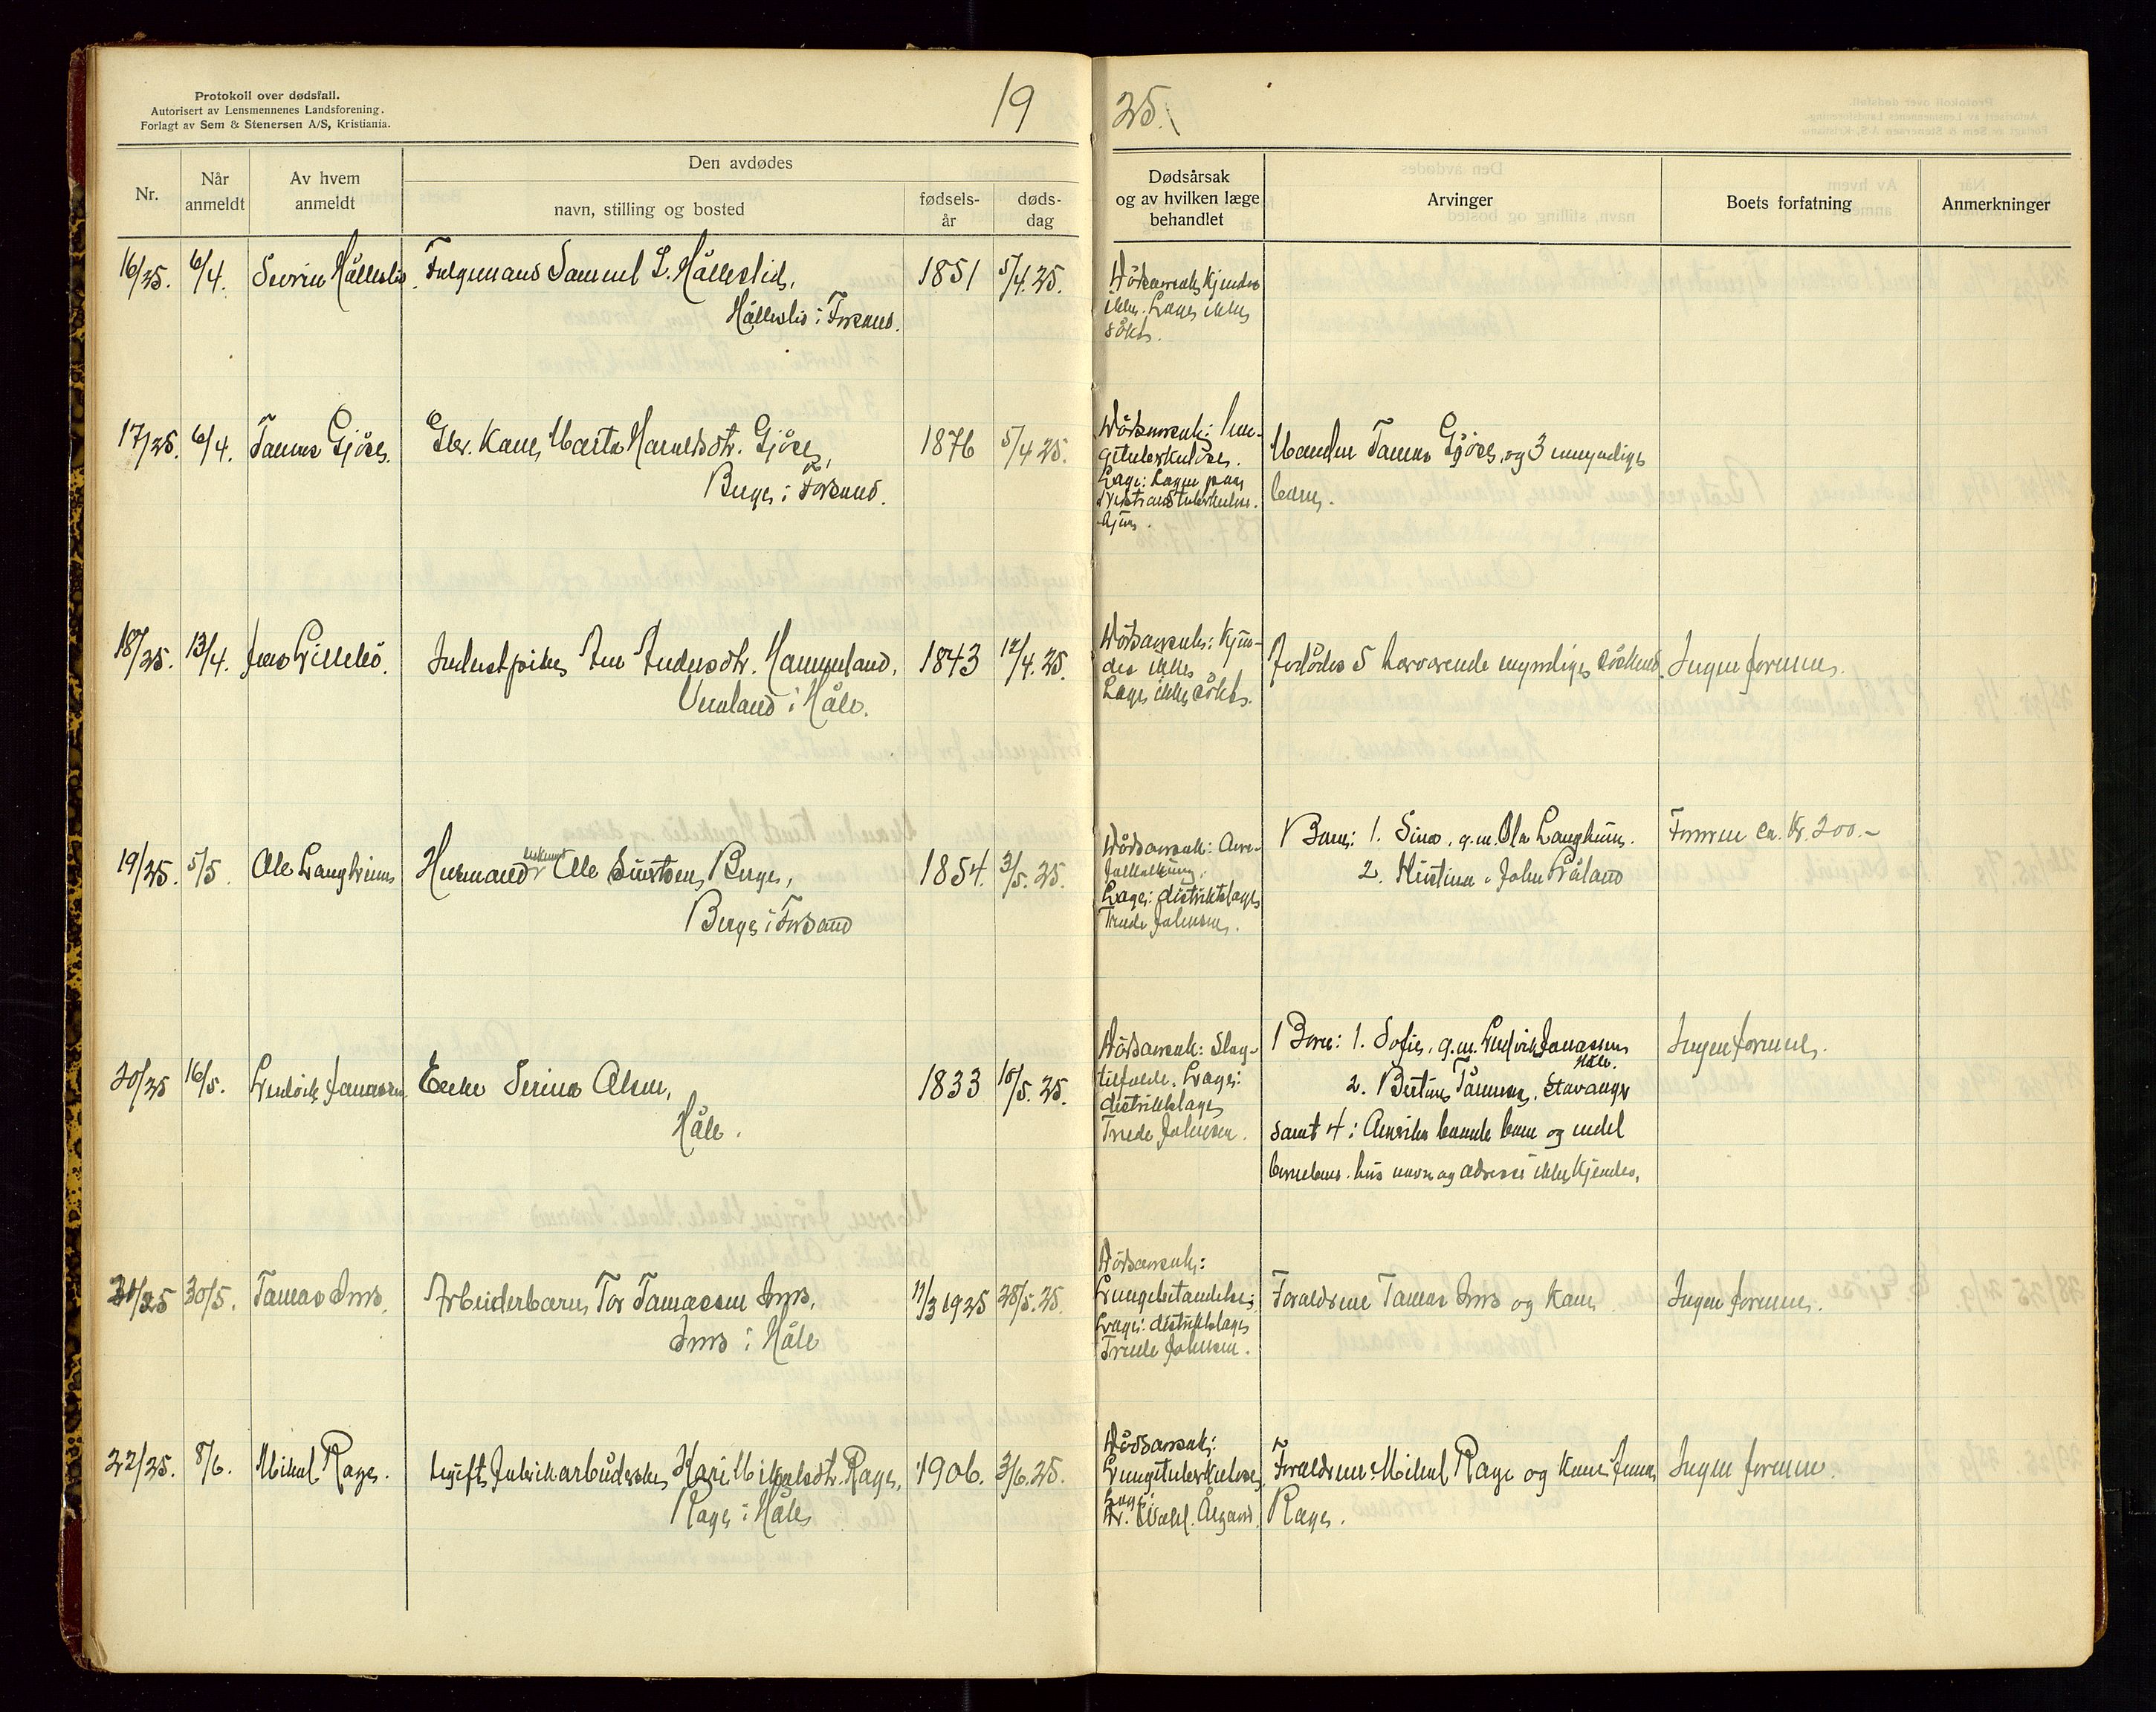 Protokoll over dødsfall.
Autorisert av Lensmennenes Landsforening.
Forlagt av Sem & Stenersen A/S, Kristiania.
19 25.
Nr.
Når anmeldt
Av hvem anmeldt
Den avdødes
navn, stilling og bosted
fødsels-år
døds-dag
Dødsårsak og av hvilken læge behandlet
Arvinger
Boets forfatning
Anmerkninger
16/25. 6/4. Sevrin Hålleslid. Fulgemand Samuel L. Hålleslid, 1851 5/4.25.
Hålleslid i Forsand.
Dødsaarsak kjendes
ikke. Læge ikke
søkt.
17/25. 6/4. Tamas Gjøse. Gbr. Kone Marta Haraldsdtr. Gjøse, 1876 5/4 25.
Berge i Forsand.
Dødsaarsak: Lun-
getuberkulose.
Læge: Lægen paa
Vestlands tuberkulose-
hjem.
Manden Tamas Gjøse, og 3 umyndige
barn.
18/25. 13/4. Jens Lillebø. Inderstpike Ane Andersdtr. 1843 12/4.25.
i Håle.
Dødsaarsak: Kjen-
des ikke
Læge ikke søkt.
Avdødes 5 herværende myndige søskend. Ingen formue.
19/25. 5/5. Ole Langheim Husmand Olle Sivertsen Berge, 1854. 3/5.25.
Berge i Forsand
Dødsaarsak: Aare-
forkalkning.
Læge: distriktslæge
Trude Johnsen.
Barn: 1. Sina, g.m. Ola Langheim. Formue ca. kr. 200.-
2. Kristine, John
20/25 16/5. Ludvik Jonassen Enke Serina Olsen, 1833 15/5.25.
Håle.
Dødsaarsak: Slag-
tilfælde. Læge:
distriktslæge
Trude Johnsen.
1 Barn: 1. Sofie, g.m. Ludvik Jonassen Ingen formue.
Håle.
2. Bertine Tønnesen, Stavanger
samt 4 i Amerika boende barn og endel
barnebarn hvis navn og adresse ikke kjendes.
21/25 30/5. Tamas Ims. Arbeiderbarn Tor Tamassen Ims, 11/3 1925 28/5.25.
Ims i Håle
Dødsaarsak:
Lungebetændelse.
Læge: distriktslæge
Trude Johnsen.
Forældrene Tamas Ims og kone Ingen formue.
22/25. 8/6. Mikal Rage. Ugift fabrikarbeiderske Kari Mikalsdtr. Rage, 1906. 3/6.25.
Rage i Håle
Dødsaarsak:
Lungetuberkulose.
Læge:
dr. Wahl. Ålgaard.
Forældrene Mikal Rage og kone Ingen formue.
Rage.